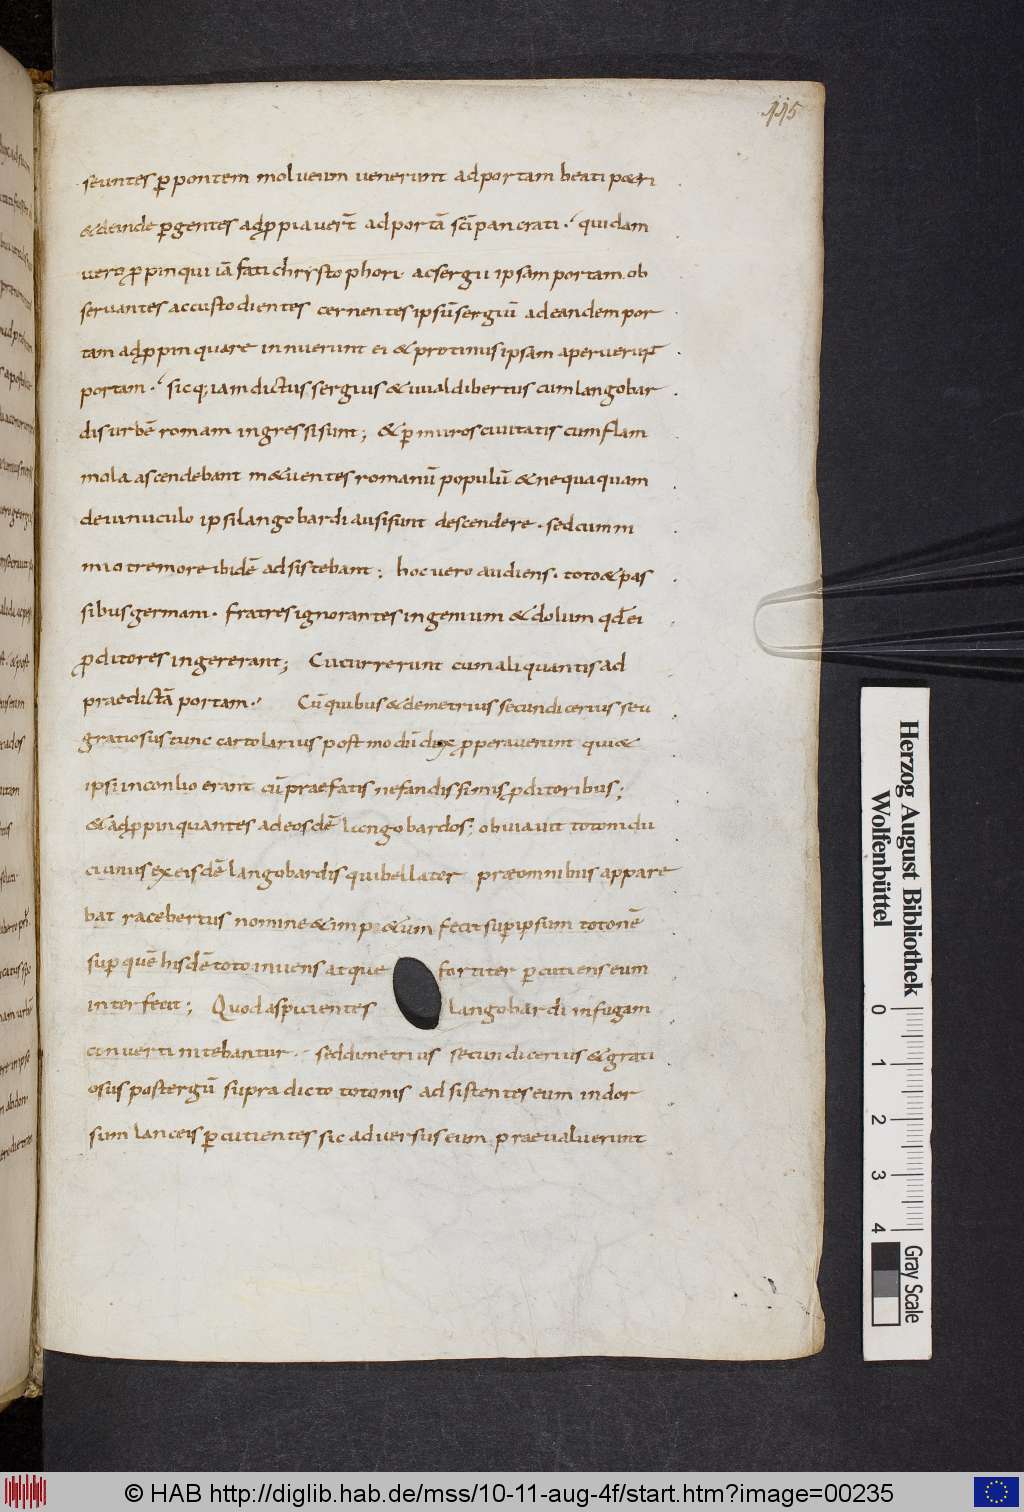 115
seuntes p̱ pontem molueum uenerunt ad portam beati p&ri
& deinde p̱gentes adp̱piauer̄t ad portā sc̄i pancrati. quidam
uero p̱pinqui iā fati christophori. ac sergii ipsam portam ob
seruantes ac custodientes cernentes ipsū sergiū ad eandem por
tam adp̱pinquare innuerunt ei & protinus ipsam aperuerunt
portam. sicq; iam dictus sergius & uualdibertus cum langobar
dis urbē romam ingressi sunt; & p̱ muros ciuitatis cum flam
mola ascendebant m&uentes romanū populū & nequaquam
de ianuculo ipsi langobardi ausi sunt descendere. sed cum ni
mio tremore ibidē adsistebant; hoc uero audiens. toto & pas
sibus germani. fratres ignorantes ingenium & dolum qd̄ ei
p̱ditores ingererant; Cucurrerunt cum aliquantis ad
praedictā portam. Cū quibus & demetrius secundicerius seu
gratiosus tunc cartolarius post modū dux p̱perauerunt qui &
ipsi in conlio erant cū praefatis nefandissimis p̱ditoribus;
& adp̱pinquantes ad eosdē langobardos; obuiauit totoni du
ci unus ex eisdē langobardis qui bellater prae omnibus appare
bat racebertus nomine & imp&um fecit sup̱ ipsum totonē
sup̱ quē hisdē toto inuens atque fortiter p̱cutiens eum
interfecit; Quod aspicientes langobardi in fugam
conuerti nitebantur. sed dimetrius secundicerius & grati
osus post ergū supra dicto totonis adsistentes eum in dor
sum lanceis p̱cutientes sic aduersus eum praeualuerunt
Herzog August Bibliothek
Wolfenbüttel
0 1 2 3 4
Gray Scale
© HAB http://diglib.hab.de/mss/10-11-aug-4f/start.htm?image=00235